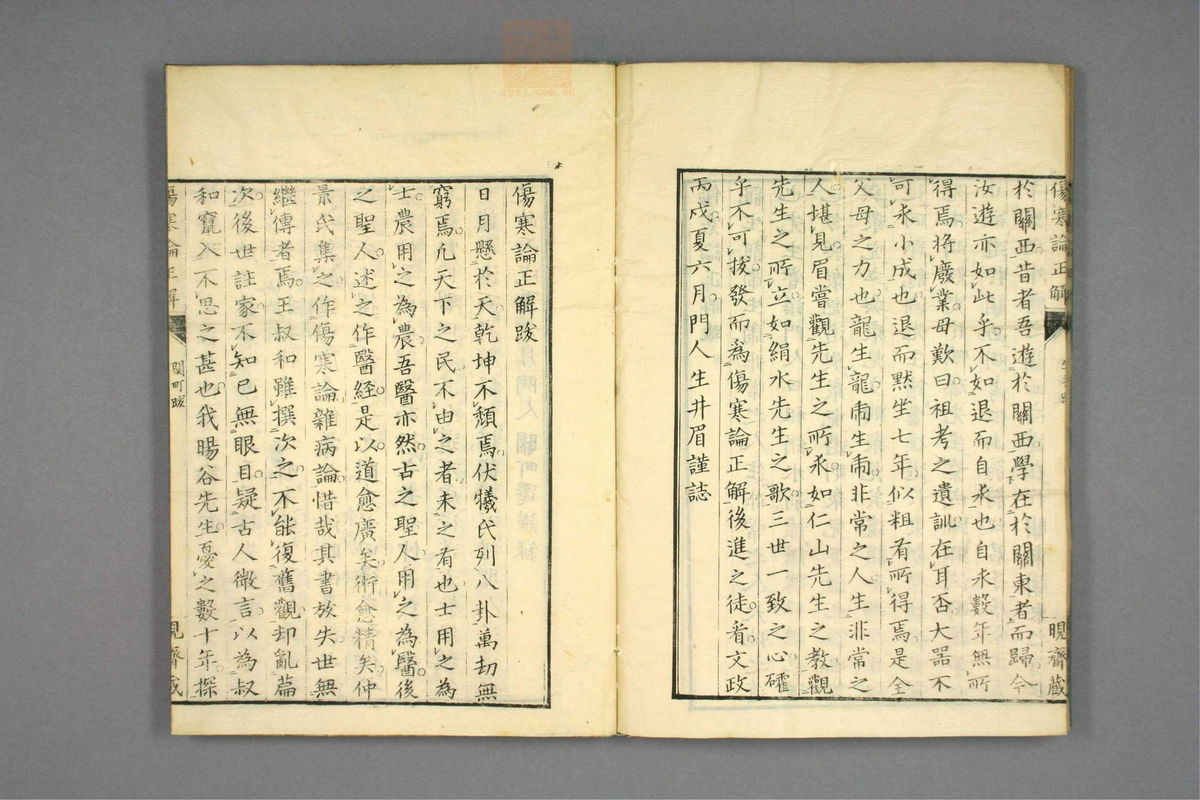 傷寒論正解
晛齋藏
於關西昔者吾遊於關西學在於關東者而歸今
汝遊亦如此乎不如退而自求也自求數年無所
得焉將廢業母歎曰祖考之遺訓在耳否大器不
可求小成也退而默坐七年似粗有所得焉是全
父母之力也龍生龍鬿生鬿非常之人生非常之
人堪見眉當觀先生之所求如仁山先生之教觀
先生之所立如絹水先生之歌三世一致之心確
乎不可拔發而爲傷寒論正解後進之徒看文政
丙戍夏六月門人生井眉謹誌
傷寒論正解跋
日月懸於天乾坤不頹焉伏犧氏列八卦萬劫無
窮焉凡天下之民不由之者未之有也士用之為
士農用之為農吾醫亦然古之聖人用之為醫後
之聖人述之作醫經是以道愈廣矣術愈精矣仲
景氏集之作傷寒論雜病論惜哉其書放失世無
繼傳者焉王叔和雖撰次之不能復舊觀却亂篇
次後世註家不知已無眼目疑古人微言以為叔
和竄入不思之甚也我暘谷先生憂之數十年探
傷寒論正解
関町跋
晛齋藏